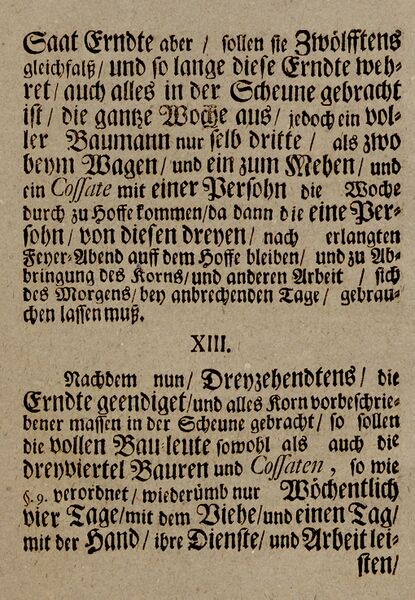 Saat Erndte aber / sollen sie Zwölfftens
gleichfalß / und so lange diese Erndte weh-
ret / auch alles in der Scheune gebracht
ist / die gantze Woche aus / jedoch ein vol-
ler Baumann nur selb dritte / als zwo
beym Wagen / und ein zum Mehen / und
ein Cossate mit einer Persohn die Woche
durch zu Hoffe kommen / da dann die eine Per-
sohn / von diesen dreyen / nach erlangten
Feyer-Abend auff dem Hoffe bleiben / und zu Ab-
bringung des Korns / und anderen Arbeit / sich
des Morgens / bey anbrechenden Tage / gebrau-
chen lassen muß.
XIII.
Nachdem nun / Dreyzehendtens / die
Erndte geendiget / und alles Korn vorbeschrie-
bener massen in der Scheune gebracht / so sollen
die vollen Bau-leute sowohl als auch die
dreyviertel Bauren und Cossaten, so wie
§. 9. verordnet / wiederümb nur Wöchentlich
vier Tage / mit dem Viehe / und einen Tag /
mit der Hand / ihre Dienste / und Arbeit lei-
sten /